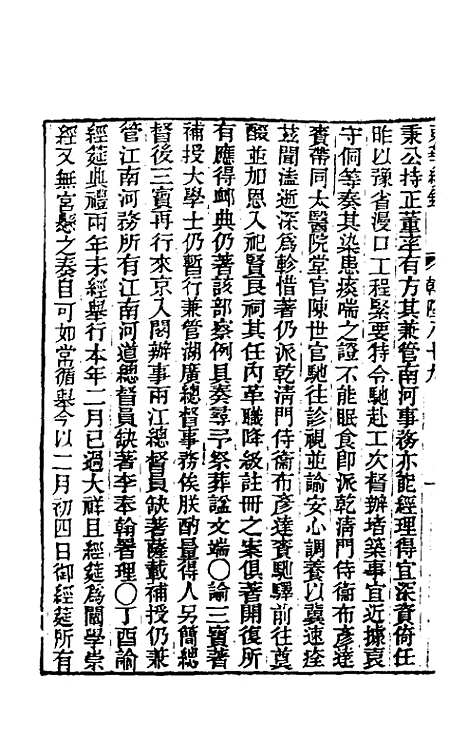 東華續錄　乾隆八十九　一
秉公持正董率有方其兼管南河事務亦能經理得宜深資倚任
昨以豫省漫口工程緊要特令馳赴工次督辦堵築事宜近據袁
守侗等奏其染患痰喘之證不能眠食即派乾淸門侍衞布彥達
賚帶同太醫院堂官陳世官馳往診視並諭安心調養以冀速痊
茲聞溘逝深爲軫惜著仍派乾淸門侍衞布彥達賚馳驛前往奠
醊並加恩入祀賢良祠其任內革職降級註冊之案俱著開復所
有應得䘏典仍著該部察例具奏尋予祭葬諡文端〇諭三寶著
補授大學士仍暫行兼管湖廣總督事務俟朕酌量得人另簡總
督後三寶再行來京入閣辦事兩江總督員缺著薩載補授仍兼
管江南河務所有江南河道總督員缺著李奉翰署理〇丁酉諭
經筵典禮兩年未經舉行本年二月已過大祥且經筵爲闡學崇
經又無宮懸之奏自可如常循舉今以二月初四日御經筵所有